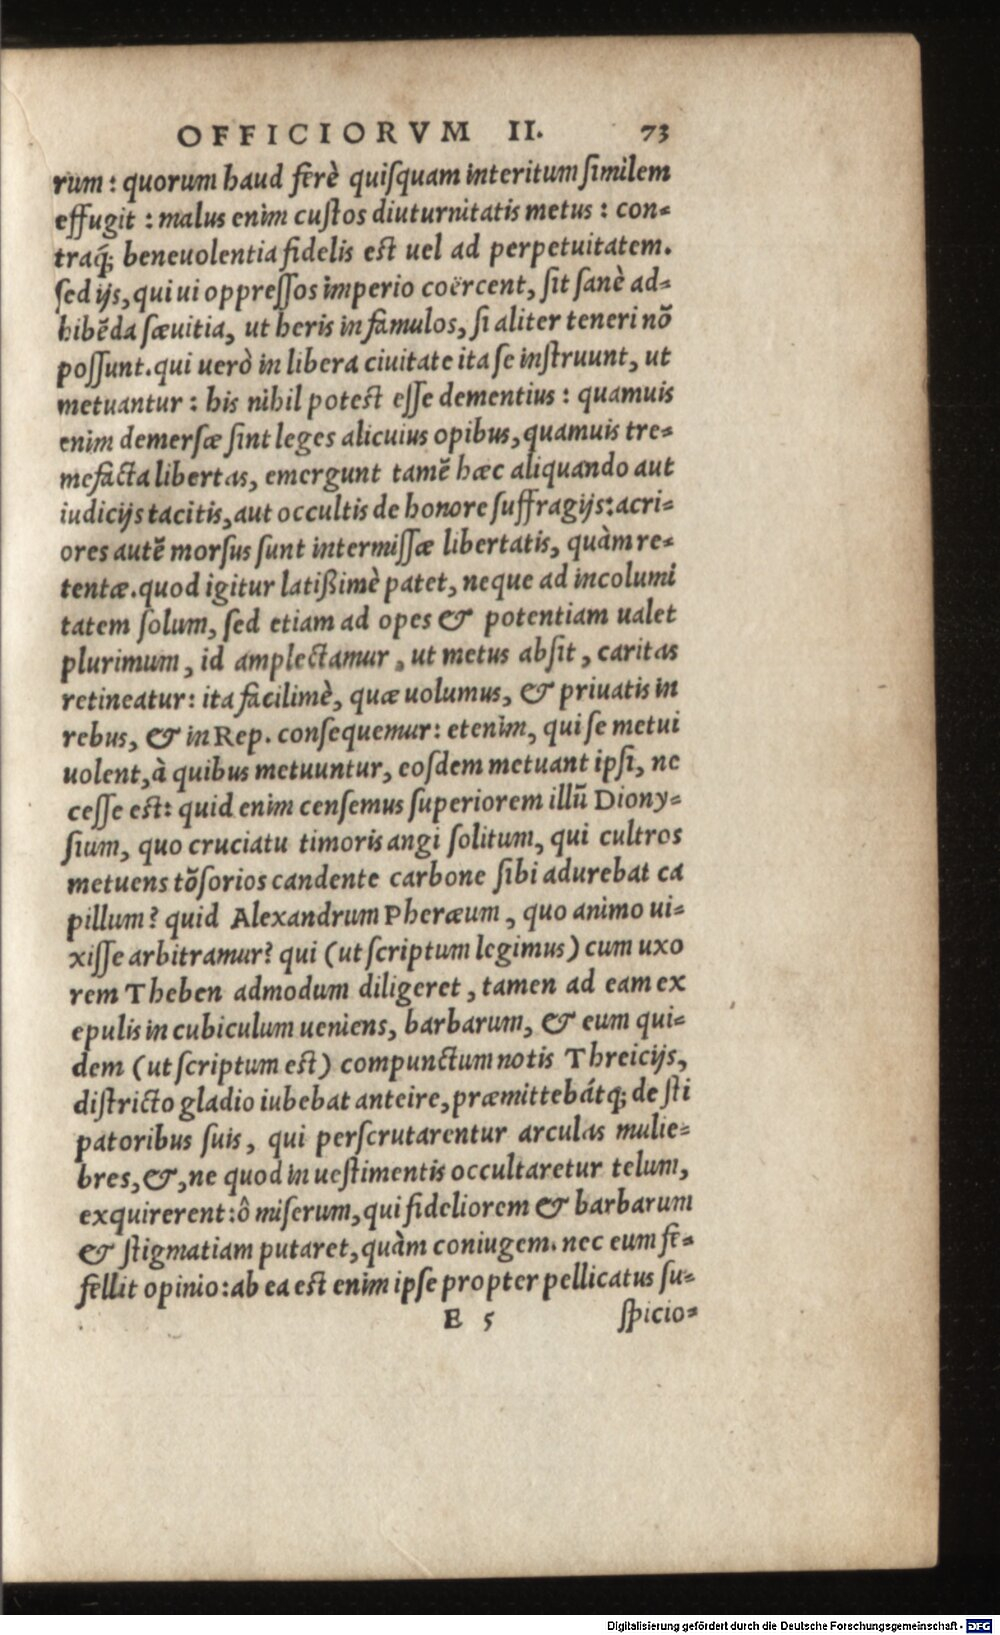 OFFICIORVM II. 73
rum : quorum haud ferè quiſquam interitum ſimilem
effugit : malus enim cuſtos diuturnitatis metus : con=
traq́; beneuolentia fidelis eſt uel ad perpetuitatem.
ſed ijs, qui ui oppreſſos imperio coërcent, ſit ſanè ad=
hibẽda ſæuitia, ut heris in famulos, ſi aliter teneri nõ
poſſunt. qui uerò in libera ciuitate ita ſe inſtruunt, ut
metuantur : his nihil poteſt eſſe dementius : quamuis
enim demerſæ ſint leges alicuius opibus, quamuis tre=
mefacta libertas, emergunt tamẽ hæc aliquando aut
iudicijs tacitis, aut occultis de honore ſuffragijs: acri=
ores autẽ morſus ſunt intermiſſæ libertatis, quàm re=
tentæ. quod igitur latißimè patet, neque ad incolumi
tatem ſolum, ſed etiam ad opes & potentiam ualet
plurimum, id amplectamur, ut metus abſit, caritas
retineatur: ita facilimè, quæ uolumus, & priuatis in
rebus, & in Rep. conſequemur: etenim, qui ſe metui
uolent, à quibus metuuntur, eoſdem metuant ipſi, ne
ceſſe eſt: quid enim cenſemus ſuperiorem illũ Diony=
ſium, quo cruciatu timoris angi ſolitum, qui cultros
metuens tõſorios candente carbone ſibi adurebat ca
pillum? quid Alexandrum Pheræum, quo animo ui=
xiſſe arbitramur? qui (ut ſcriptum legimus) cum uxo
rem Theben admodum diligeret, tamen ad eam ex
epulis in cubiculum ueniens, barbarum, & eum qui=
dem (ut ſcriptum eſt) compunctum notis Threicijs,
diſtricto gladio iubebat anteire, præmittebátq; de ſti
patoribus ſuis, qui perſcrutarentur arculas mulie=
bres, &, ne quod in ueſtimentis occultaretur telum,
exquirerent: ô miſerum, qui fideliorem & barbarum
& ſtigmatiam putaret, quàm coniugem. nec eum fe=
fellit opinio: ab ea eſt enim ipſe propter pellicatus ſu=
E 5 ſpicio=
Digitalisierung gefördert durch die Deutsche Forschungsgemeinschaft - DFG